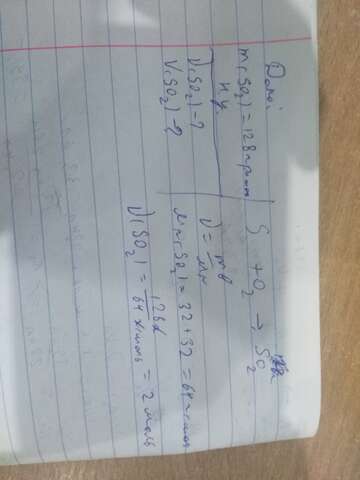 Дано:
m(SO₂) = 128 грамм
н.у.
ν(SO₂) - ?
V(SO₂) - ?
S + O₂ → SO₂
ν = mв / Mr
Mr(SO₂) = 32 + 32 = 64 г/моль
ν(SO₂) = 128г / 64 г/моль = 2 моль